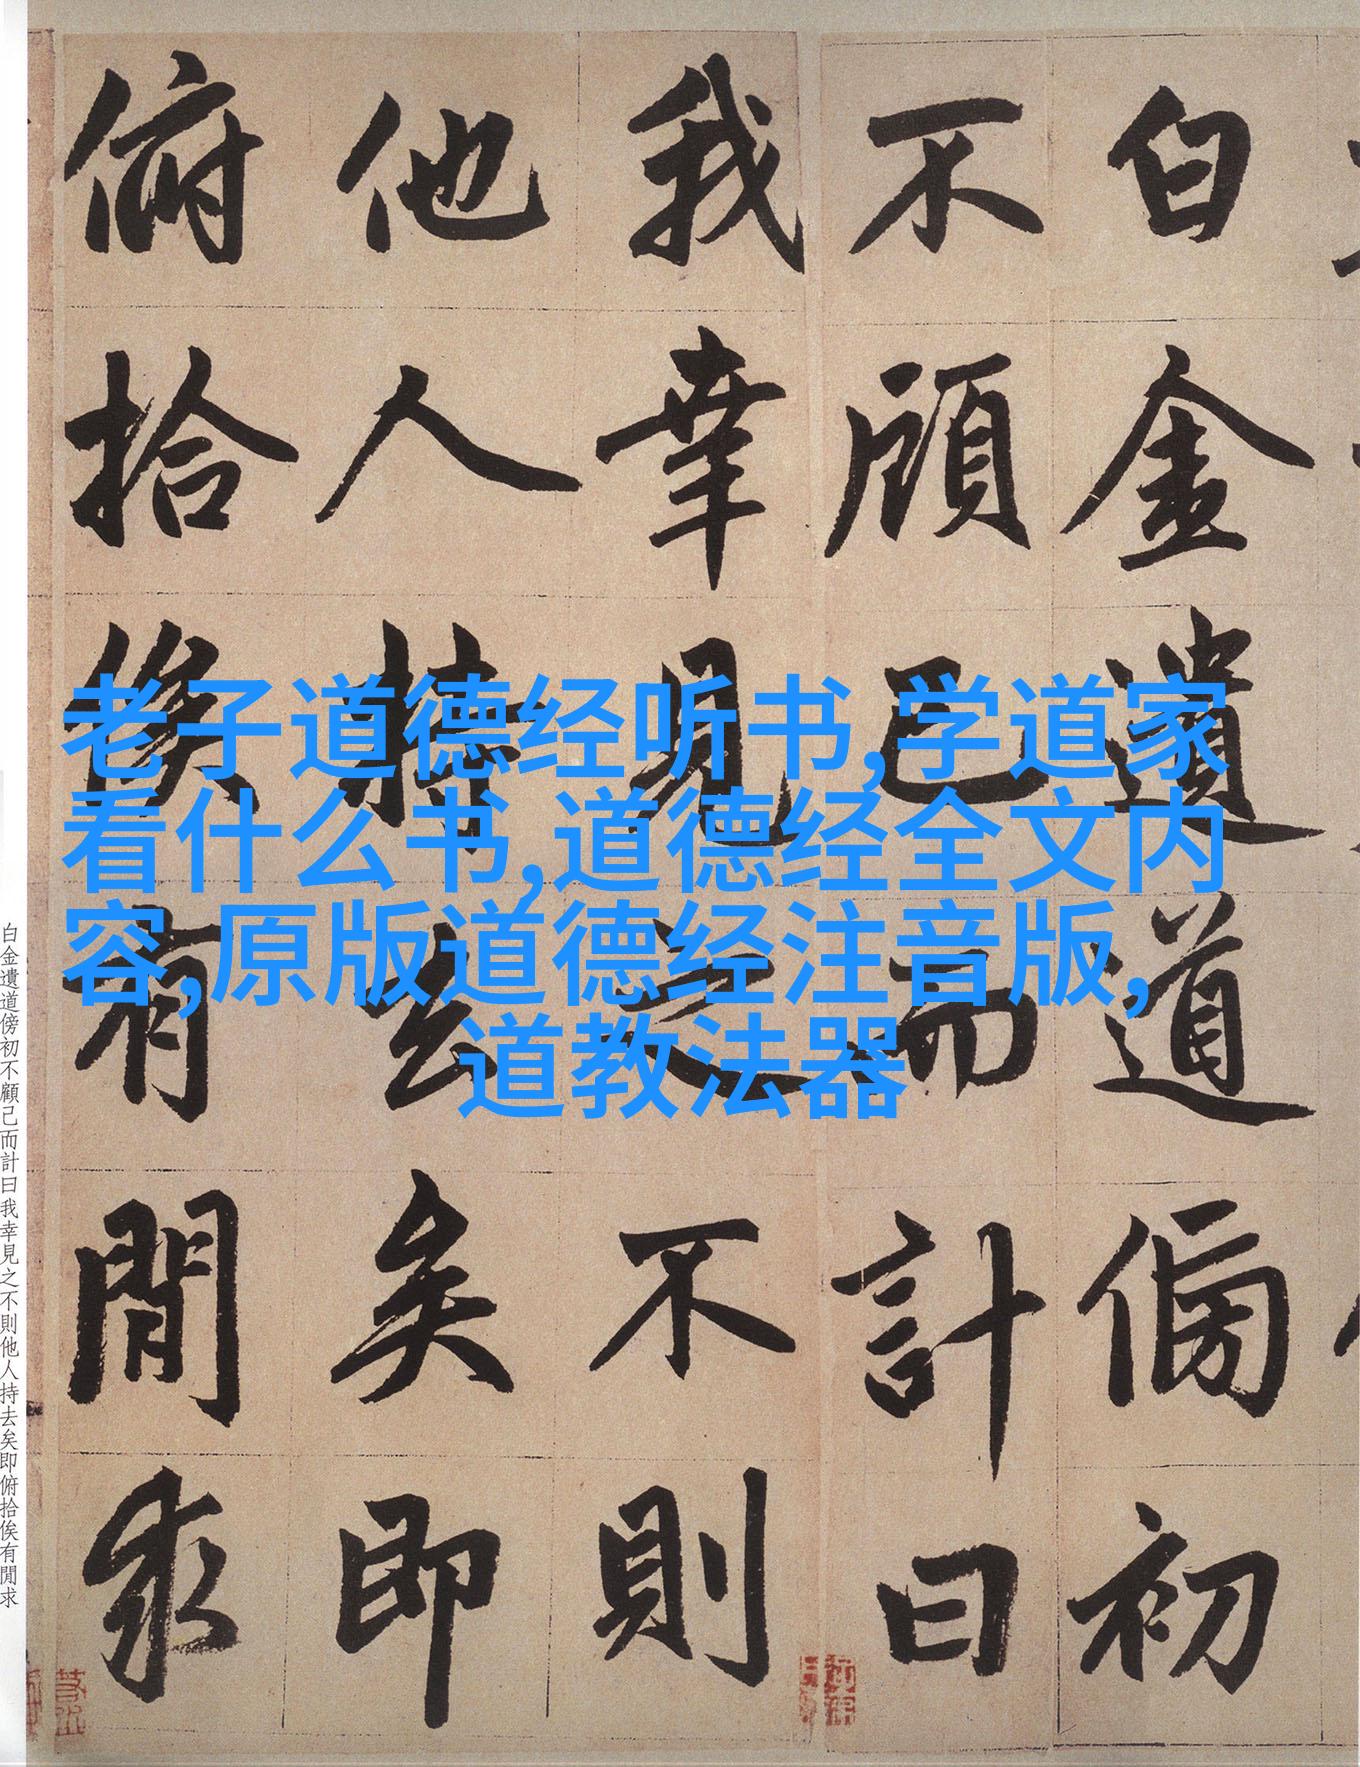 白金遺道傍初
不顧己而計曰
我幸見之不則
他人持去矣即
俯拾俟有閒求
老子道德经听书,学道家
看什么书,道德经全文内
容,原版道德经注音版,
道教法器
白金遺道傍初不顧己而計曰我幸見之不則他人持去矣即俯拾俟有閒求